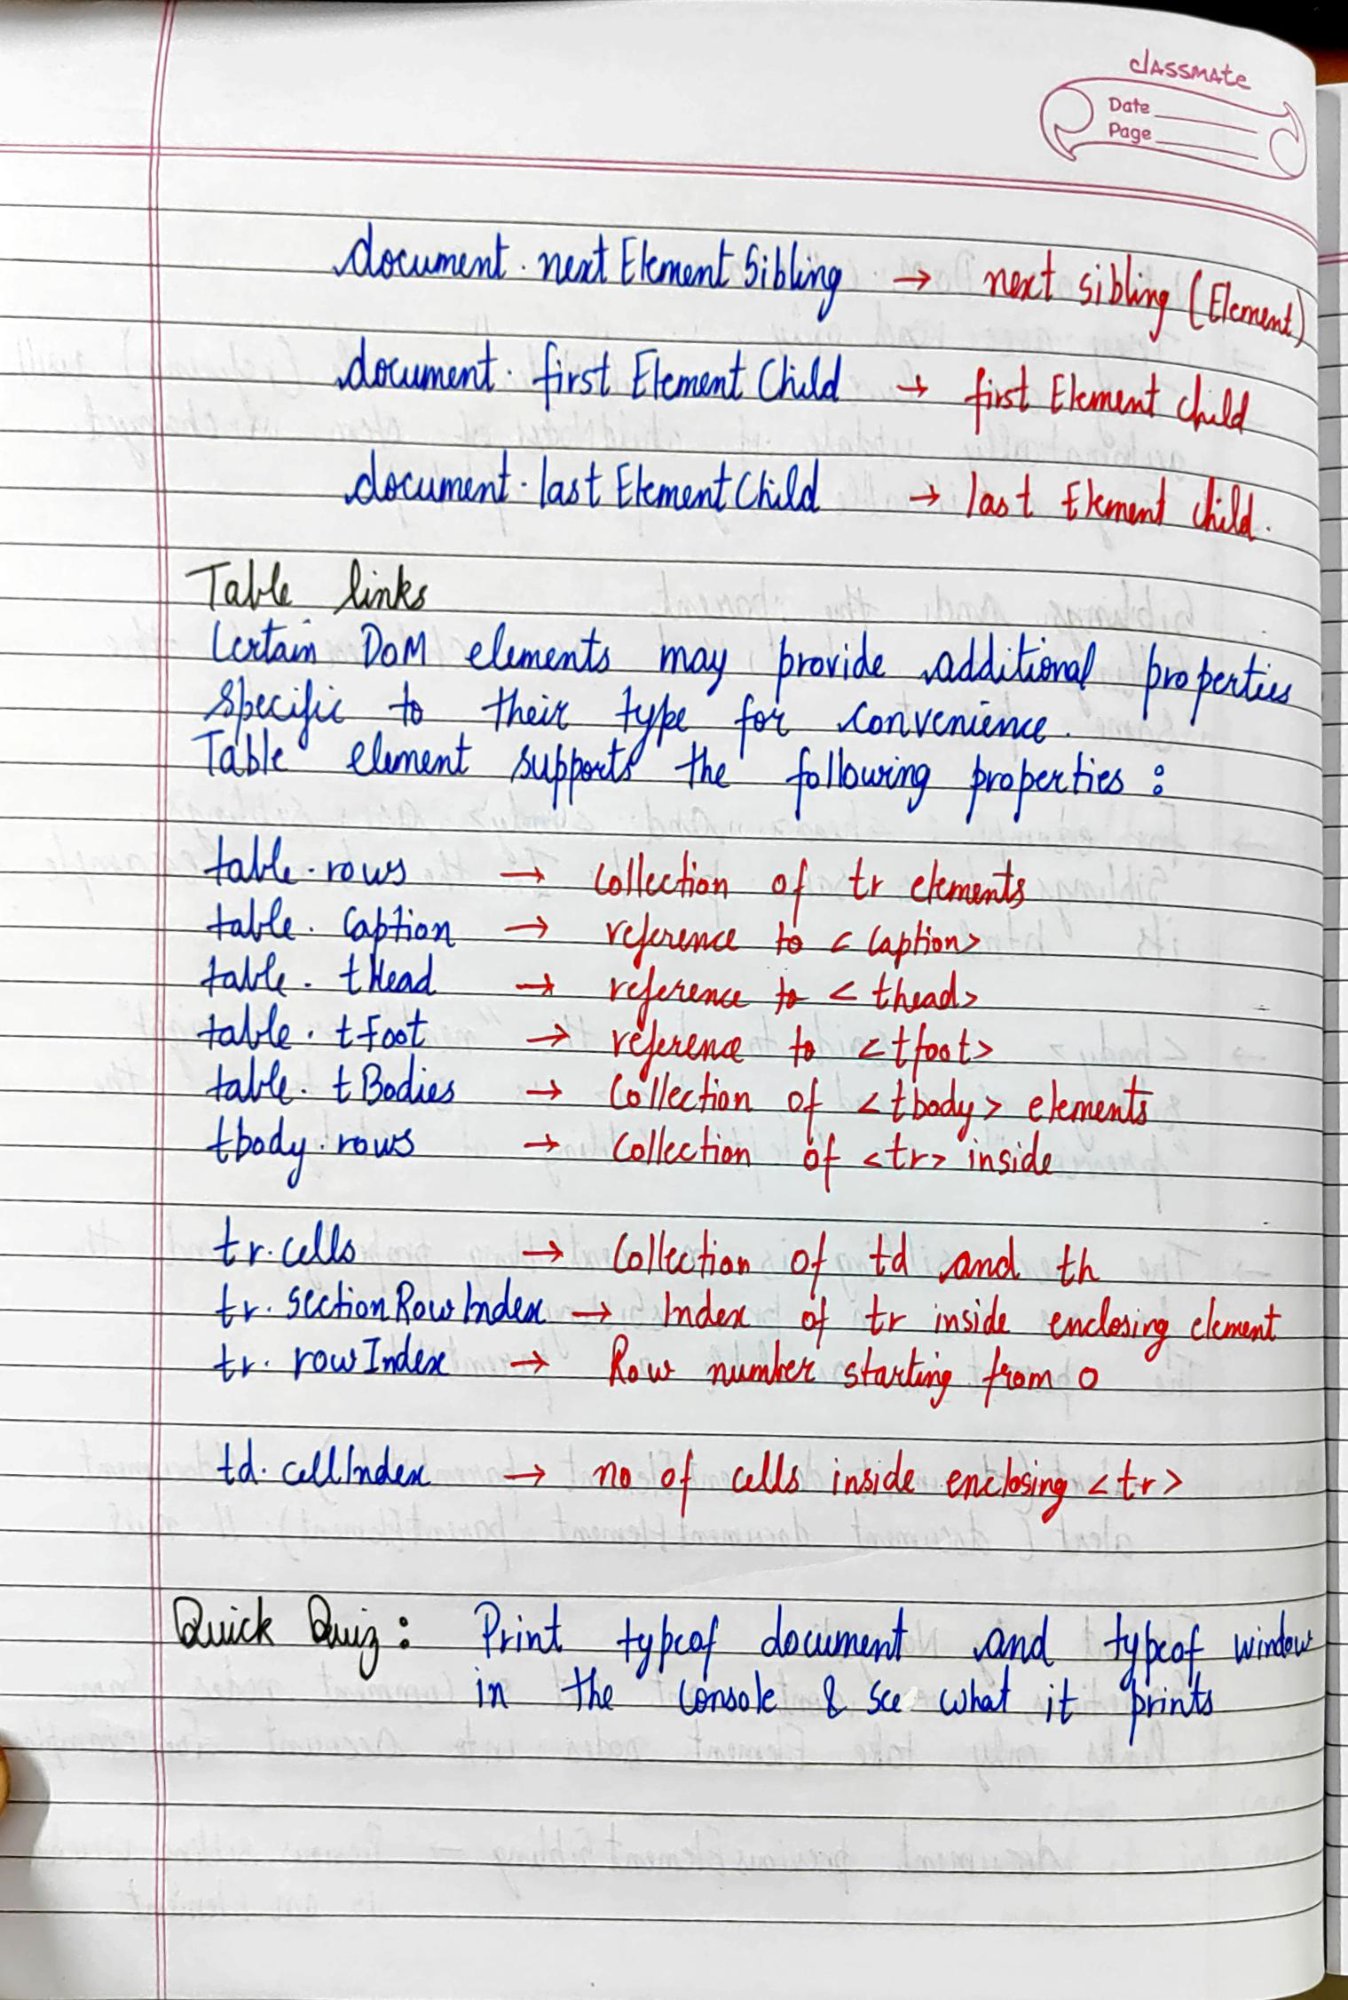 classmate
Date
Page
document. nextElementSibling → next sibling (Element)
document. firstElementChild → first Element child
document. lastElementChild → last Element child.
Table links
Certain DOM elements may provide additional properties
specific to their type for convenience.
Table element supports the following properties :
table. rows → Collection of tr elements
table. Caption → reference to <Caption>
table. tHead → reference to <thead>
table. tFoot → reference to <tfoot>
table. tBodies → Collection of <tbody> elements
tbody. rows → Collection of <tr> inside
tr. cells → Collection of td and th
tr. sectionRowIndex → Index of tr inside enclosing element
tr. rowIndex → Row number starting from 0
td. cellIndex → no of cells inside enclosing <tr>
Quick Quiz : Print typeof document and typeof window
in the console & see what it prints